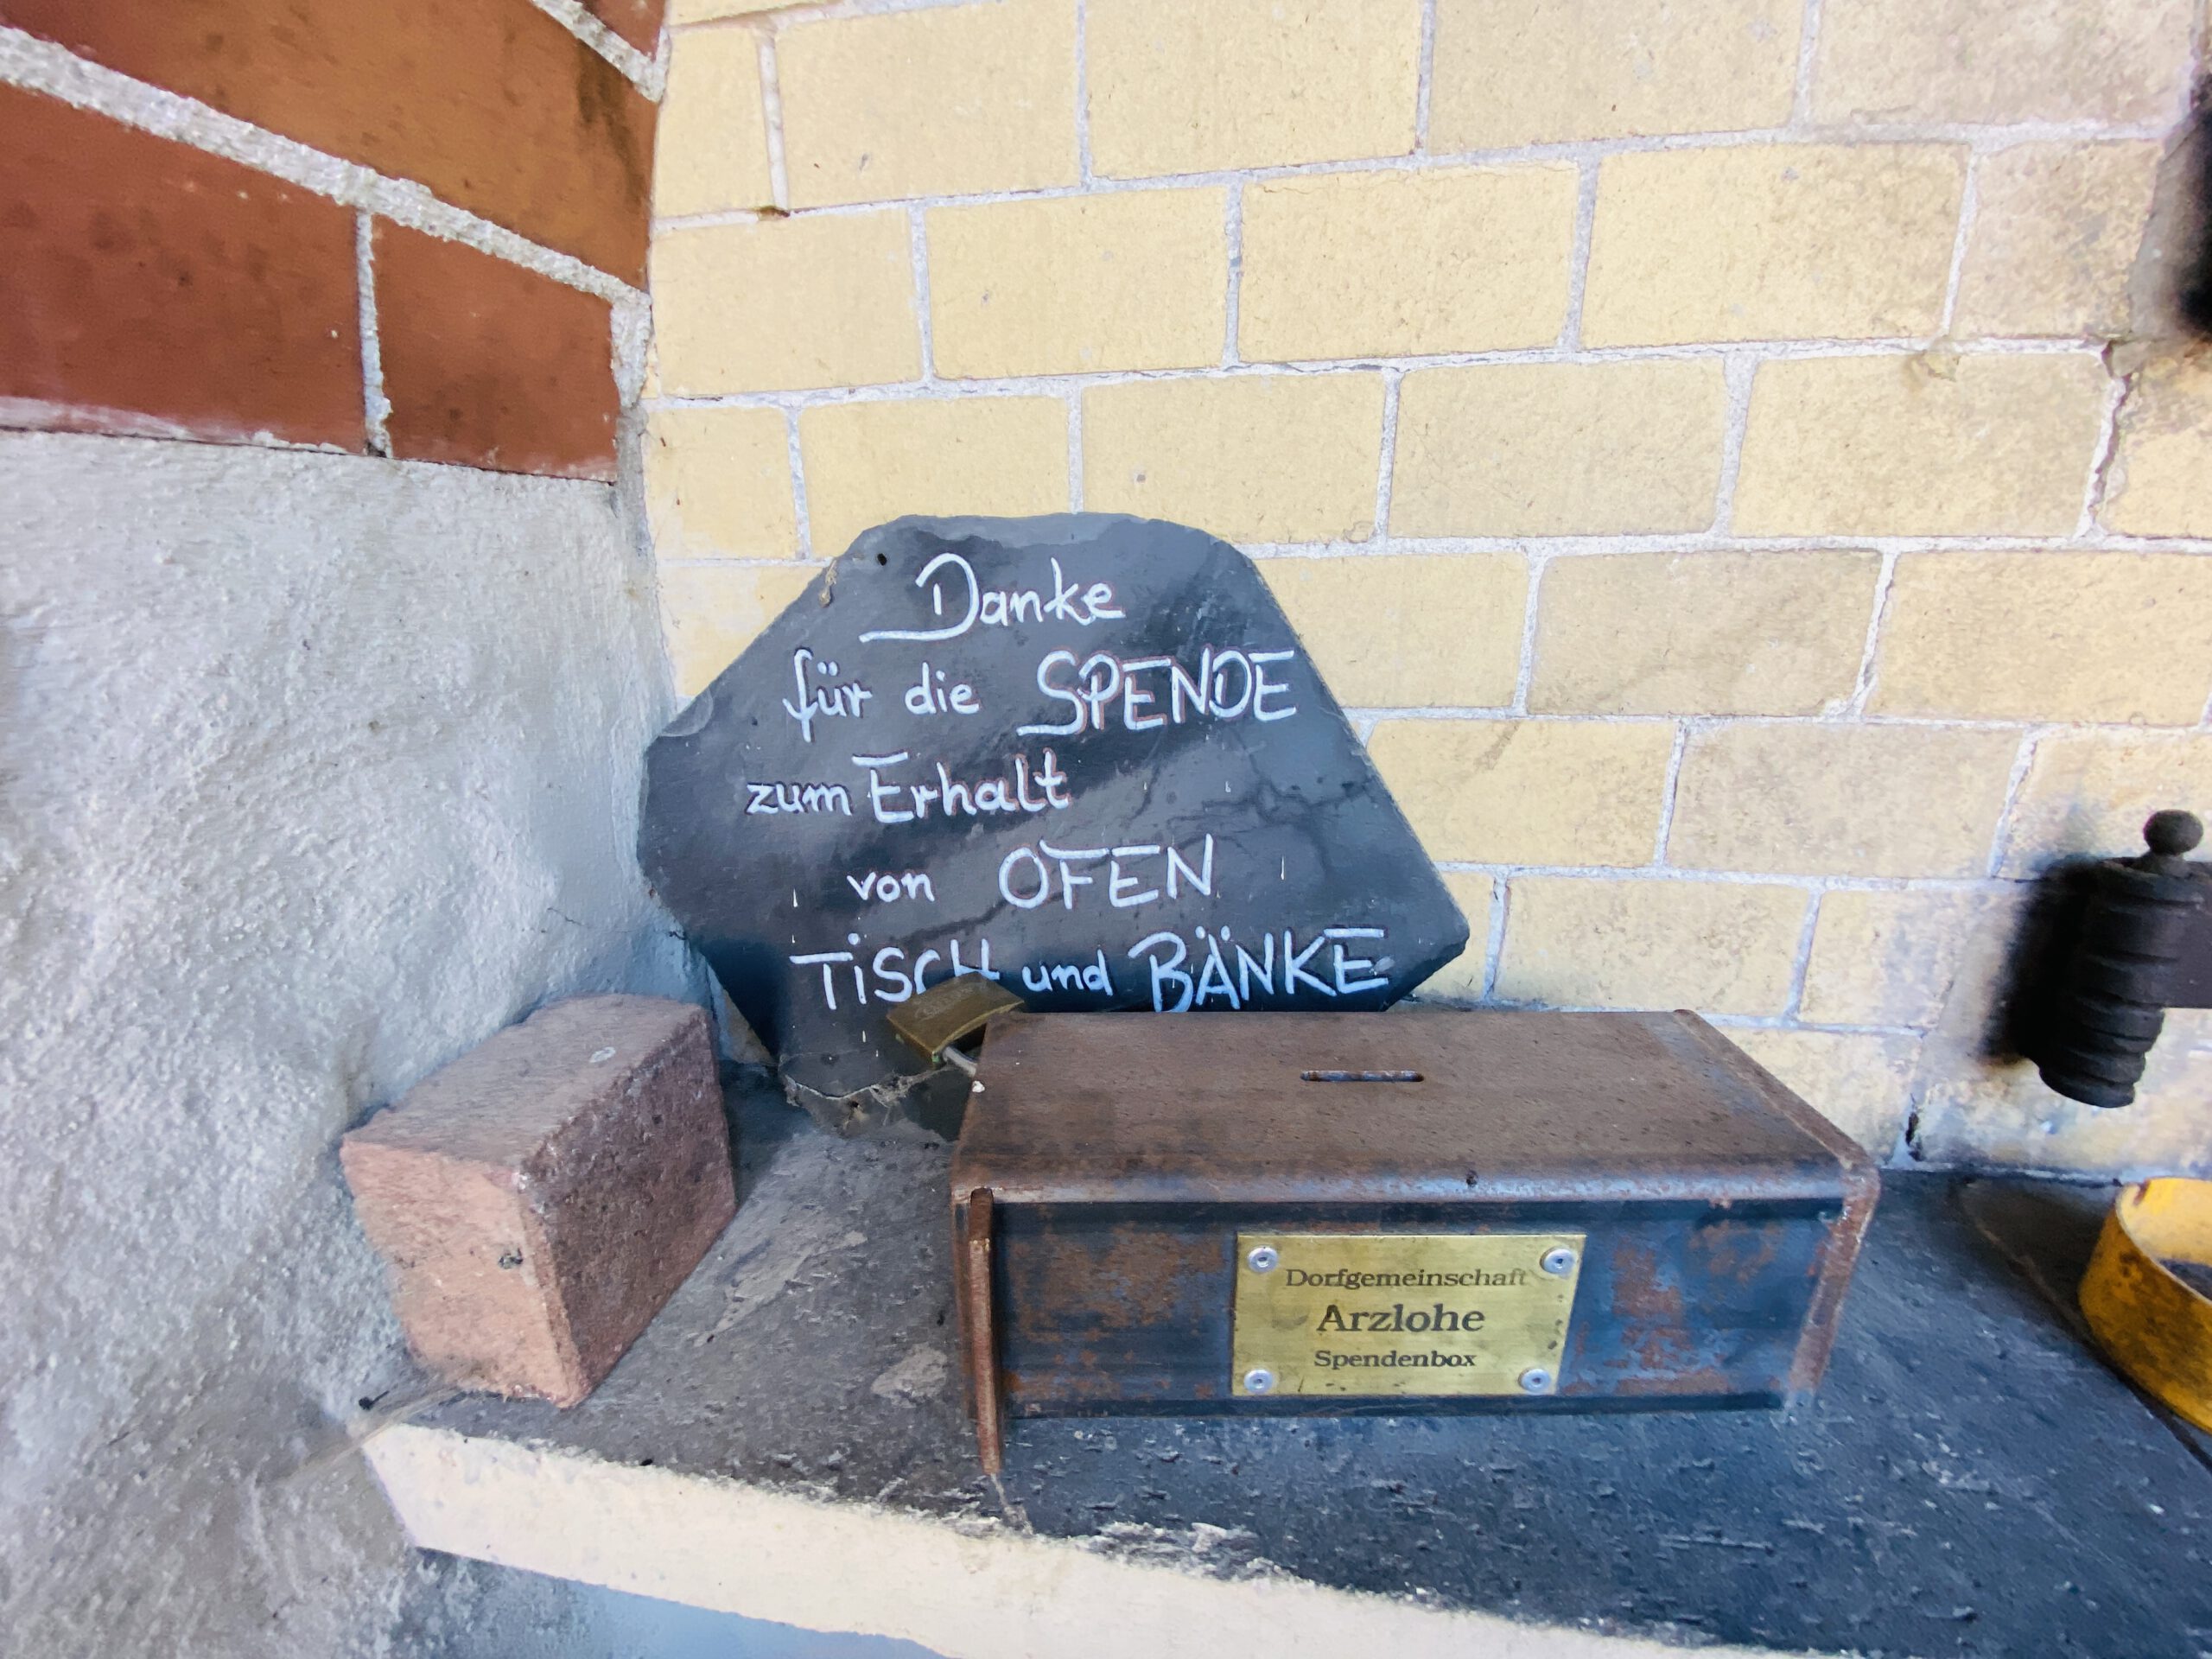 Danke
für die SPENDE
zum Erhalt
von OFEN
TiSCH und BÄNKE
Dorfgemeinschaft
Arzlohe
Spendenbox